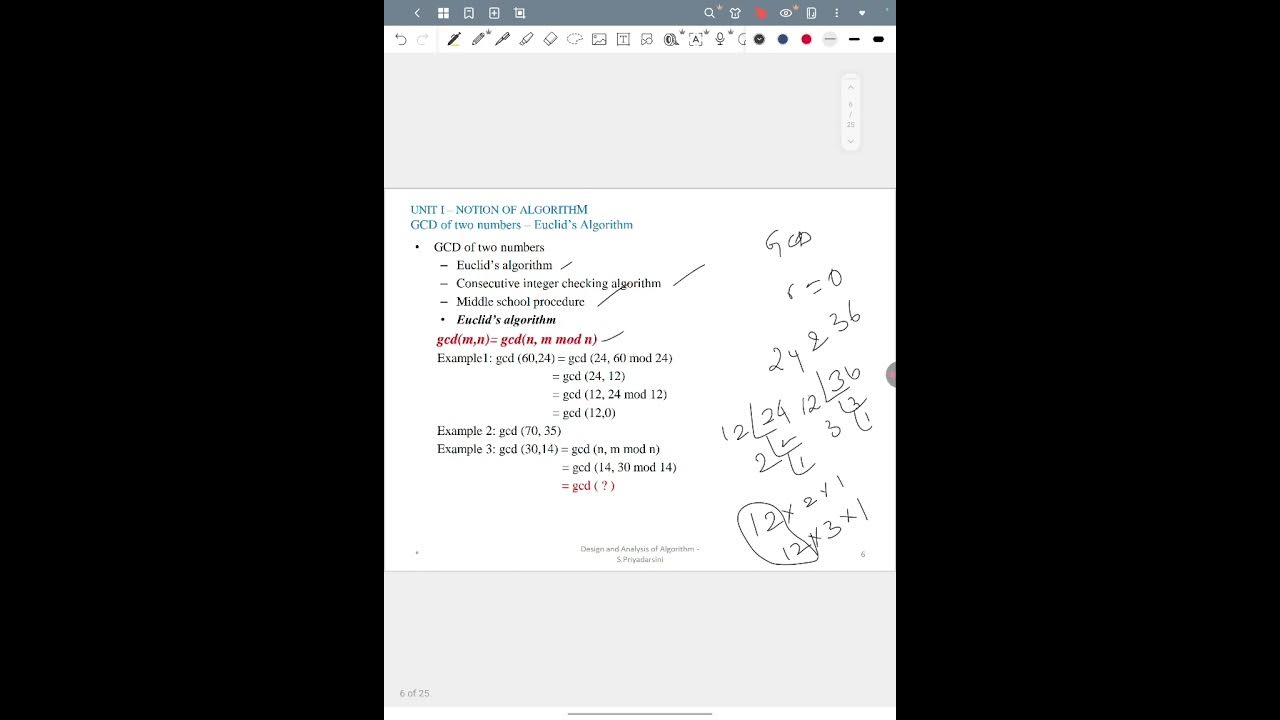 6
/
25
UNIT I – NOTION OF ALGORITHM
GCD of two numbers – Euclid's Algorithm
• GCD of two numbers
– Euclid's algorithm
– Consecutive integer checking algorithm
– Middle school procedure
• Euclid's algorithm
gcd(m,n)= gcd(n, m mod n)
Example1: gcd (60,24) = gcd (24, 60 mod 24)
= gcd (24, 12)
= gcd (12, 24 mod 12)
= gcd (12,0)
Example 2: gcd (70, 35)
Example 3: gcd (30,14) = gcd (n, m mod n)
= gcd (14, 30 mod 14)
= gcd ( ? )
GCD
r = 0
24 & 36
12 24 12 36
2 3
2 1
12 × 2 × 1
12 × 3 × 1
Design and Analysis of Algorithm -
S.Priyadarsini
6
6 of 25